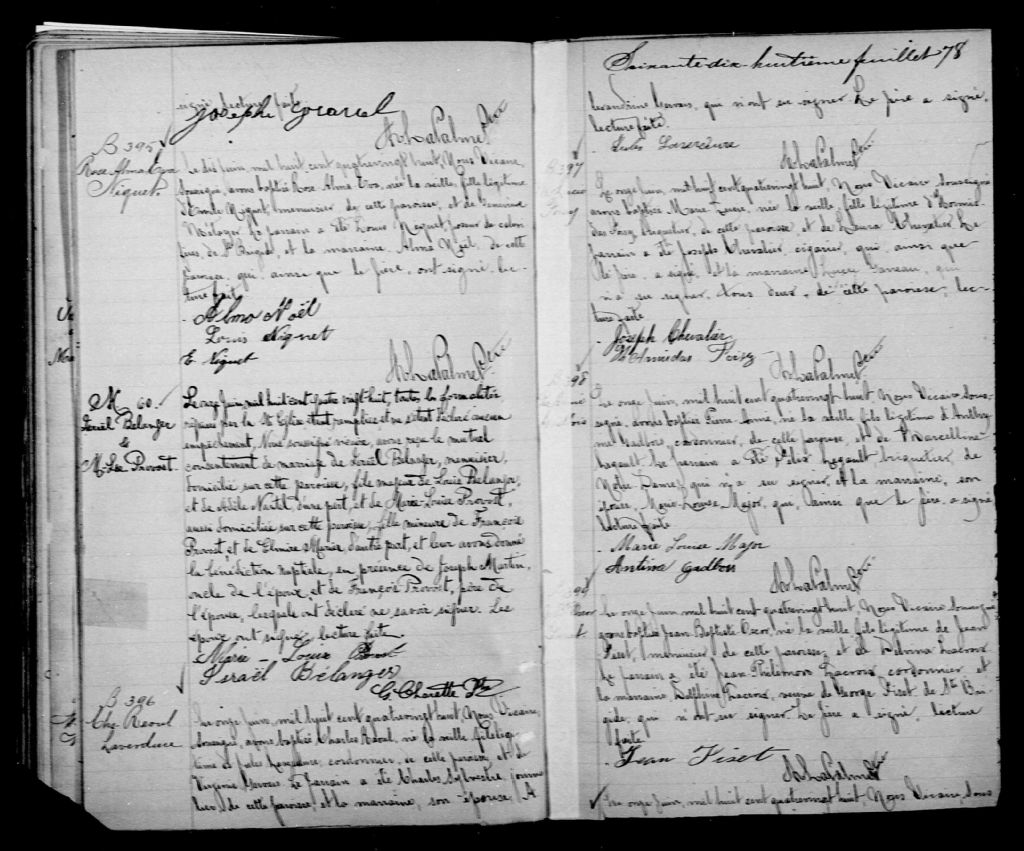 signé, lecture faite
Joseph Gravel
A. L. Lapalme Ptre
B 395
Rose Alma Eva
Niquet
Le dix juin, mil huit cent quatrevingt huit, Nous Vicaire
soussigné, avons baptisé Rose Alma Eva, née la veille, fille légitime
d'Emile Niquet, menuisier de cette paroisse, et de
Bélanger. Le parrain a été Louis Niquet, poseur de
de Ste Brigide, et la marraine, Alma Noël, de cette
paroisse, qui ainsi que le père, ont signé. lec-
ture faite
Alma Noël
Louis Niquet
E. Niquet
A. L. Lapalme Ptre
M 60.
Israël Belanger
&
M. Lse Provost
Le onze juin, mil huit cent quatre vingt-huit, toutes les formalités
requises par la Ste Eglise étant remplies et ne s'étant déclaré aucun
empêchement, Nous soussigné vicaire, avons reçu le mutuel
consentement de mariage de Israël Bélanger, menuisier,
domicilié sur cette paroisse, fils majeur de Louis Bélanger,
et de Adèle Nartel d'une part, et de Marie-Louise Provost,
aussi domiciliée sur cette paroisse, fille mineure de François
Provost, et de Elmire Marier, d'autre part, et leur avons donné
la bénédiction nuptiale, en présence de Joseph Martin,
oncle de l'époux, et de François Provost, père de
l'épouse, lesquels ont déclaré ne savoir signer. Les
époux ont signé, lecture faite.
Marie-Louise Provost
Israël Bélanger
G. Charette
B 396
Chs Raoul
Laverdure
Le onze juin, mil huit cent quatrevingt huit, Nous Vicaire,
soussigné, avons baptisé Charles Raoul, né la veille, fils légi-
time de Jules Laverdure, cordonnier, de cette paroisse, et de
Virginie Gervais. Le parrain a été Charles Sylvestre, journa
lier de cette paroisse, et la marraine, son épouse, A
Soixante-dix-huitième feuillet 78
Gervais, qui n'ont su signer. Le père a signé.
lecture faite.
Jules Laverdure
A. L. Lapalme Ptre
B 397
Le onze juin, mil huit cent quatrevingt huit, Nous Vicaire soussigné
avons baptisé Marie-Lucie, née la veille, fille légitime d'Hormis-
das Foisy, briquetier, de cette paroisse, et de Laura Chevalier. Le
parrain a été Joseph Chevalier, cigarier, qui ainsi que
le père, a signé, et la marraine, Lucie Garneau, qui
n'a su signer, tous deux, de cette paroisse, lec-
ture faite
Joseph Chevalier
Hormisdas Foisy
A. L. Lapalme Ptre
398
Le onze juin, mil huit cent quatrevingt huit, Nous Vicaire sous-
signé, avons baptisé
cordonnier, de cette paroisse, et de Marcelline
Legault. Le parrain a été Félix Legault, briquetier, de
Notre Dame, qui n'a su signer, et la marraine, son
épouse, Marie-Louise Major, qui ainsi que le père, a signé
lecture faite
Marie Louise Major
Antime Gadbois
A. L. Lapalme Ptre
Le onze juin, mil huit cent quatrevingt huit, Nous Vicaire, soussigné
avons baptisé Jean Baptiste Oscar, né la veille, fils légitime de Jean
Fiset, menuisier de cette paroisse, et de Delvina Lacroix
Le parrain a été Jean Philémon Lacroix, cordonnier et
la marraine Delphine Lacroix, veuve de George Fiset de Ste Bri-
gide, qui n'ont su signer. Le père a signé, lecture
faite
Jean Fiset
A. L. Lapalme Ptre
Le onze juin, mil huit cent quatrevingt huit, Nous Vicaire, sous